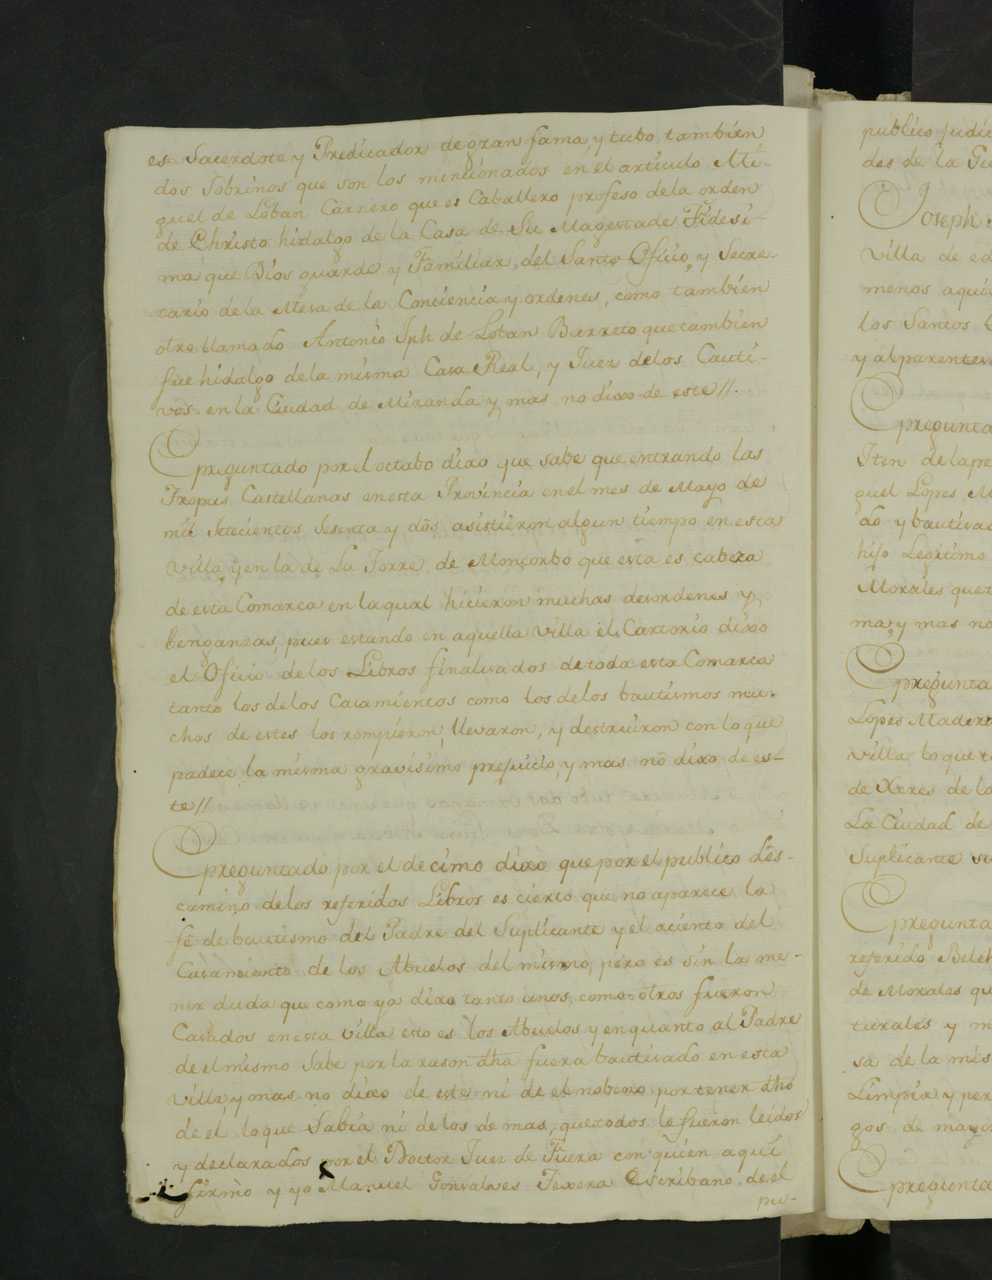 es Sacerdote y Predicador de gran fama y tubo tambien
dos Sobrinos que son los mencionados en el articulo Mi-
guel de Loban Carnero que es Caballero profeso dela orden
de Christo hidalgo de la Casa de Su Magestade Fidesi-
ma que Dios guarde y Familiar del Santo Oficio, y Secre-
tario dela Mesa de la Conciencia y ordenes, como tambien
otro llamado Antonio Jph de Loban Barreto que tambien
fue hidalgo dela misma Casa Real, y Juez delos Cauti-
vos en la Ciudad de Miranda y mas no dixo de este //.
preguntado por el octabo dixo que sabe que entrando las
Tropas Castellanas en esta Provincia en el mes de Mayo de
mil setecientos Sesenta y dos asistieron algun tiempo en esta
villa, y en la de La Torre de Moncorbo que esta es cabeza
de esta Comarca en la qual hicieron muchas desordenes y
benganzas, pues estando en aquella villa el Cartorio dixo
el Oficio de los Libros finalizados de toda esta Comarca
tanto los delos Casamientos como los delos bautismos mu-
chos de estes los rompieron, llevaron, y destruiron con lo que
padece la misma gravisimo prejuicio, y mas no dixo de es-
te //
preguntado por el decimo dixo que por el publico des-
camino delos referidos Libros es cierto que no aparece la
fe de bautismo del Padre del Suplicante y el aciento del
Casamiento de los Abuelos del mismo, pero es sin la me-
nor duda que como ya dixo tanto unos, como otros fueron
Casados en esta villa esto es los Abuelos y en quanto al Padre
de el mismo Sabe por la rason dha fuera bautizado en esta
villa y mas no dixo de este ni de el nobeno por tener dho
de el lo que Sabia ni delos demas, que todos le fueron leidos
y declarados por el Doctor Juez de Fuera con quien aqui
firmò y yo Manuel Gonsalves Texera Escribano de el
pu-
publico judici
des de la
Joseph
villa de
menos aqui
los Santos
y al parentes
pregunta
Iten dela
guel Lopes M
do y bautiza
hijo Legitimo
Morales que
ma, y mas no
pregunta
Lopes Madera
villa lo que
de Xeres de lo
La Ciudad de
Suplicante
pregunta
referido
de Morales qu
turales y m
sa de la mis
Limpia y per
gos de mayo
pregunta